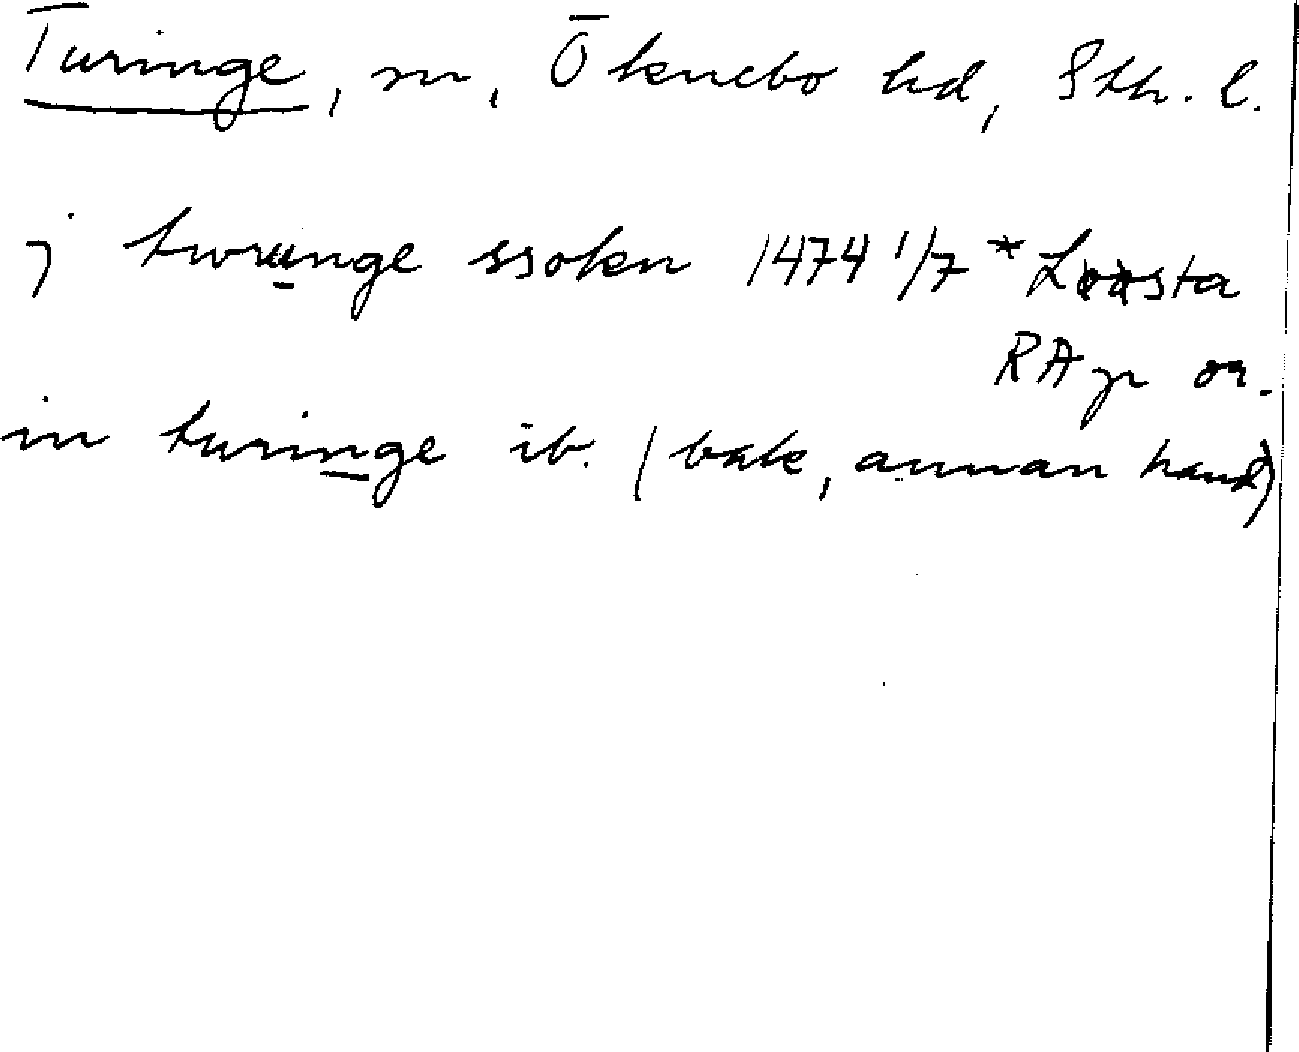 Turinge, sn, Öknebo hd, Sth. l.
j twrunge ssokn 1474 1/7 *
RAp or.
in turinge ib. (bak, annan hand)